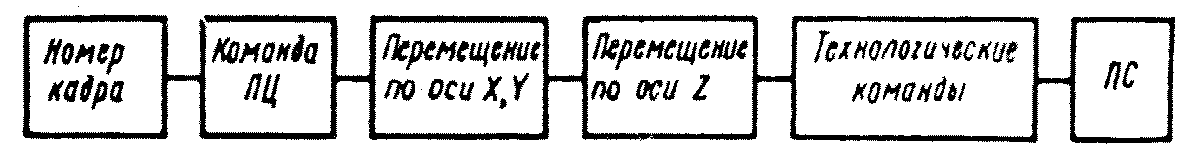 Номер
кадра
Команда
ПЦ
Перемещение
по оси X,Y
Перемещение
по оси Z
Технологические
команды
ПС